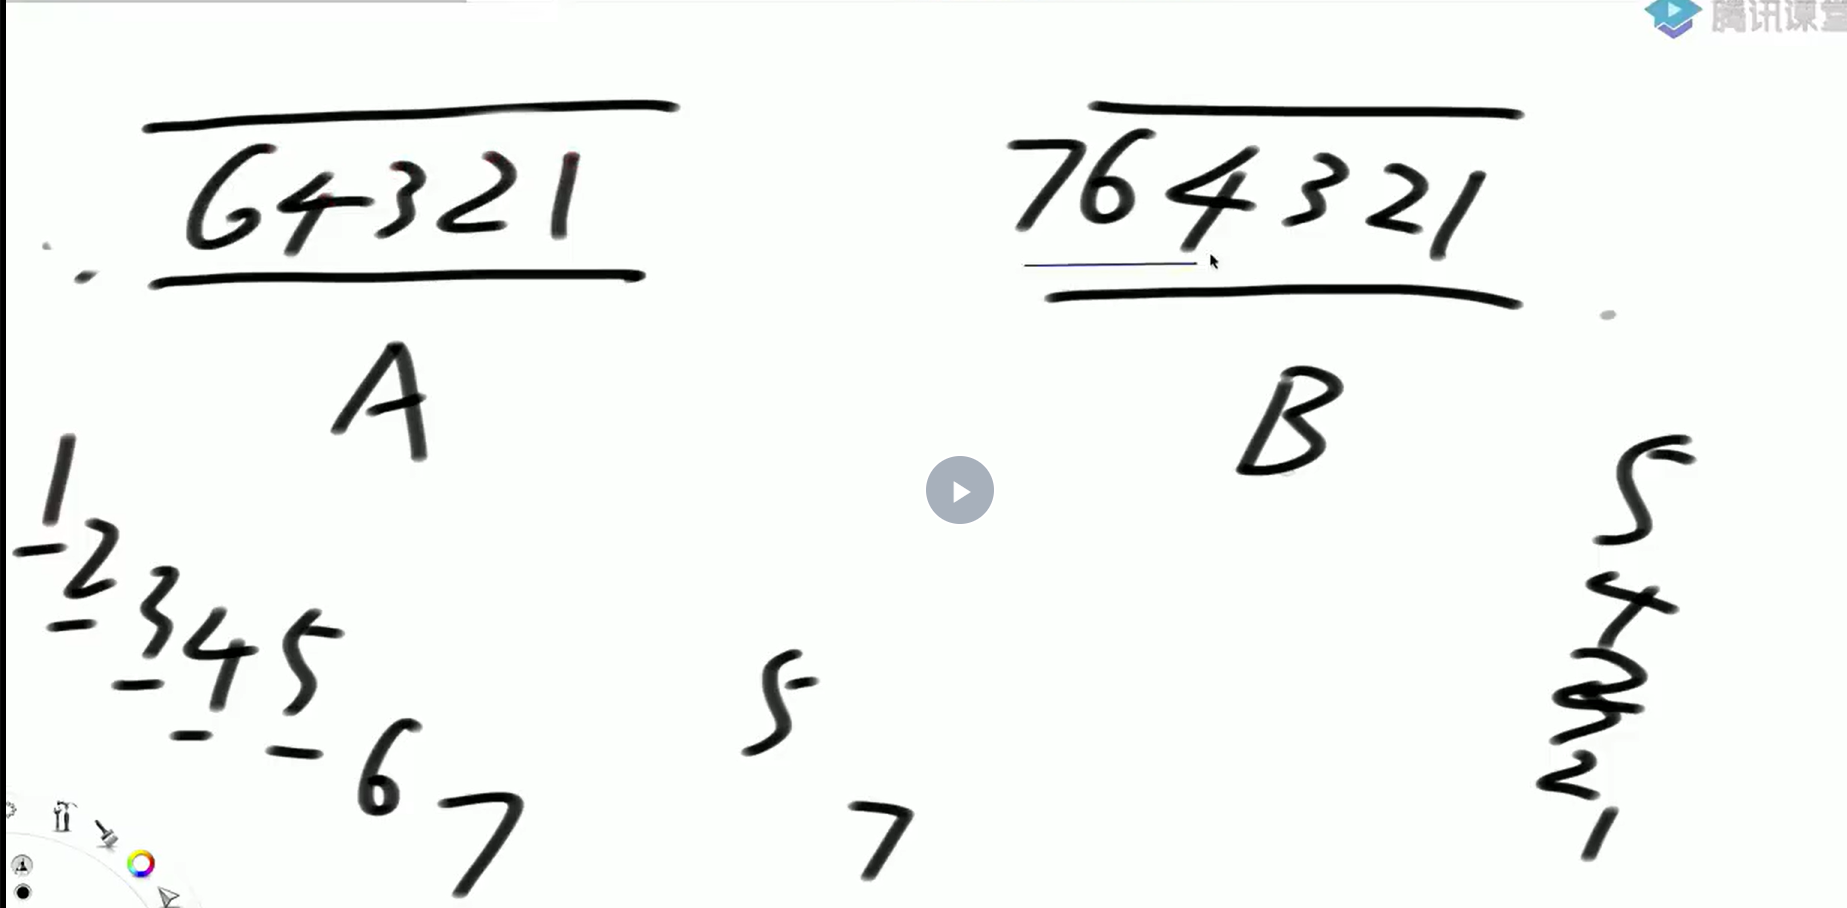 腾讯课堂
64321
764321
A
B
1
2
3
4
5
6
7
5
7
5
4
2
1